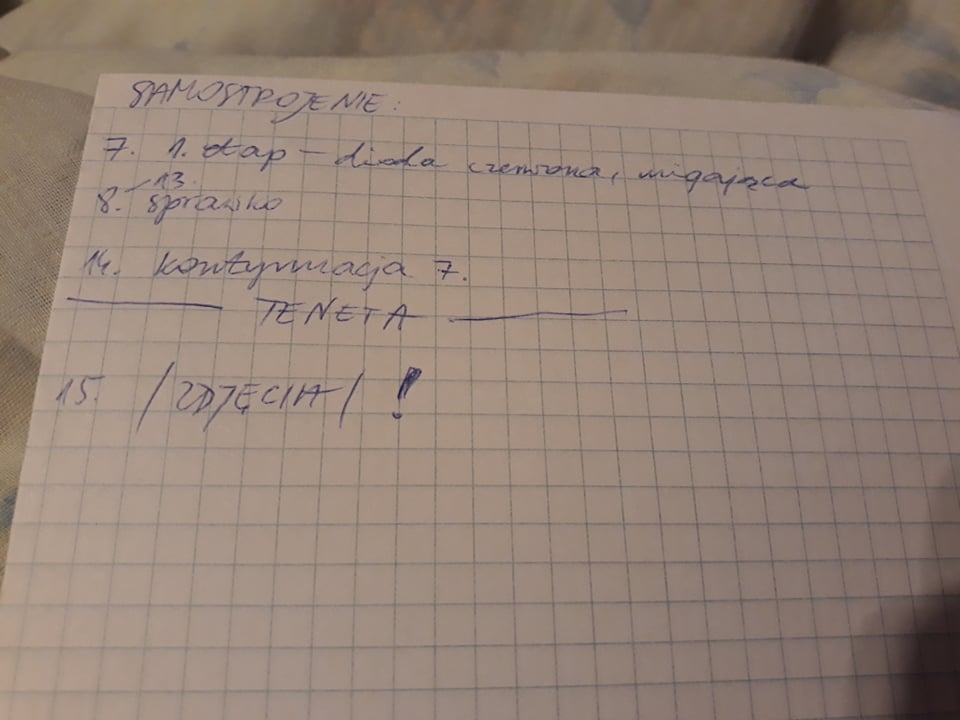 SAMOSTROJENIE:
7. 1. etap – dioda czerwona, migająca
8.–13. sprawko
14. kontynuacja 7.
TENETA
15. /ZDJĘCIA/ !